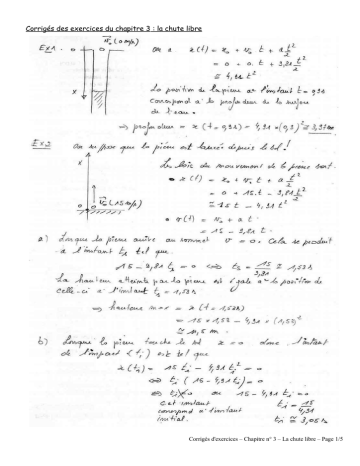 Corrigés des exercices du chapitre 3 : la chute libre
Ex1. v₀ (0 m/s) on a x(t) = x₀ + v₀ t + a t²/2
= 0 + 0. t + 9,81 t²/2
≅ 4,91 t²
x
La position de la pierre à l'instant t = 0,91
correspond à la profondeur de la surface
de l'eau.
⇒ profondeur = x(t = 0,91) = 4,91 • (0,9)² ≅ 3,97m
Ex2 On suppose que la pierre est lancée depuis le sol!
Les lois du mouvement de la pierre sont.
x • x(t) = x₀ + v₀ t + a t²/2
= 0 + 15.t - 9,81 t²/2
≅ 15 t - 4,91 t²
v₀ (15 m/s) • v(t) = v₀ + a t
= 15 - 9,81 t
a) Lorsque la pierre arrive au sommet v = 0. Cela se produit
à l'instant t₂ tel que
15 - 9,81 t₂ = 0 ⇔ t₂ = 15/9,81 ≅ 1,53 s
La hauteur atteinte par la pierre est égale à la position de
celle-ci à l'instant t₂ = 1,53s
⇒ hauteur max = x(t = 1,53s)
= 15 • 1,53 - 4,91 • (1,53)²
≅ 11,5 m.
b) Lorsque la pierre touche le sol x = 0 donc l'instant
de l'impact (tᵢ) est tel que
x(tᵢ) = 15 tᵢ - 4,91 tᵢ² = 0
⇔ tᵢ (15 - 4,91 tᵢ) = 0
⇔ tᵢ = 0 ou 15 - 4,91 tᵢ = 0
cet instant tᵢ = 15/4,91
correspond à l'instant
initial. tᵢ ≅ 3,05 s
Corrigés d'exercices – Chapitre n° 3 – La chute libre – Page 1/5